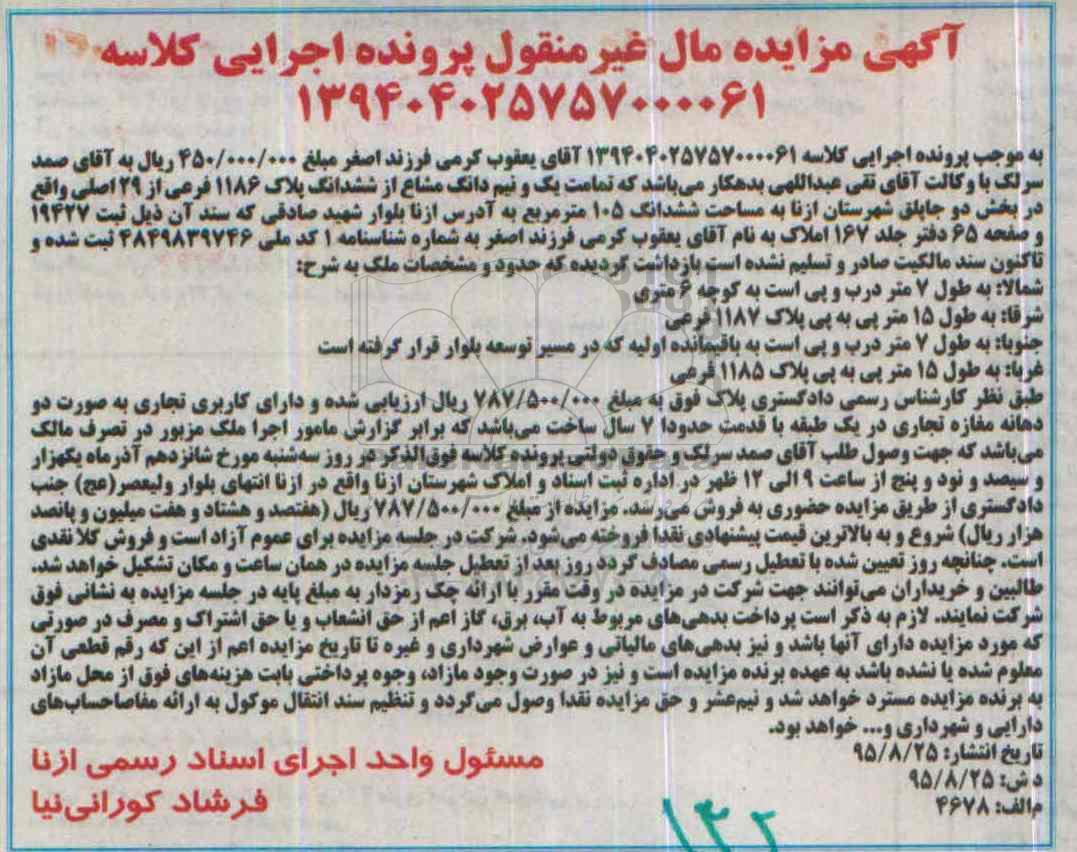 آگهی مزایده مال غیر منقول پرونده اجرایی کلاسه
۱۳۹۴۰۴۰۲۵۷۵۷۰۰۰۰۶۱
به موجب پرونده اجرایی کلاسه ۱۳۹۴۰۴۰۲۵۷۵۷۰۰۰۰۶۱ آقای یعقوب کرمی فرزند اصغر مبلغ ۴۵۰/۰۰۰/۰۰۰ ریال به آقای صمد
سرلک با وکالت آقای تقی عبداللهی بدهکار می‌باشد که تمامت یک و نیم دانگ مشاع از ششدانگ پلاک ۱۱۸۶ فرعی از ۲۹ اصلی واقع
در بخش دو جاپلق شهرستان ازنا به مساحت ششدانگ ۱۰۵ مترمربع به آدرس ازنا بلوار شهید صادقی که سند آن ذیل ثبت ۱۹۴۲۷
و صفحه ۶۵ دفتر جلد ۱۶۷ املاک به نام آقای یعقوب کرمی فرزند اصغر به شماره شناسنامه ۱ کد ملی ۴۸۴۹۸۳۹۷۴۶ ثبت شده و
تاکنون سند مالکیت صادر و تسلیم نشده است بازداشت گردیده که حدود و مشخصات ملک به شرح:
شمالا: به طول ۷ متر درب و پی است به کوچه ۶ متری
شرقا: به طول ۱۵ متر پی به پی پلاک ۱۱۸۷ فرعی
جنوبا: به طول ۷ متر درب و پی است به باقیمانده اولیه که در مسیر توسعه بلوار قرار گرفته است
غربا: به طول ۱۵ متر پی به پی پلاک ۱۱۸۵ فرعی
طبق نظر کارشناس رسمی دادگستری پلاک فوق به مبلغ ۷۸۷/۵۰۰/۰۰۰ ریال ارزیابی شده و دارای کاربری تجاری به صورت دو
دهانه مغازه تجاری در یک طبقه با قدمت حدودا ۷ سال ساخت می‌باشد که برابر گزارش مامور اجرا ملک مزبور در تصرف مالک
می‌باشد که جهت وصول طلب آقای صمد سرلک و حقوق دولتی پرونده کلاسه فوق‌الذکر در روز سه‌شنبه مورخ شانزدهم آذرماه یکهزار
و سیصد و نود و پنج از ساعت ۹ الی ۱۲ ظهر در اداره ثبت اسناد و املاک شهرستان ازنا واقع در ازنا انتهای بلوار ولیعصر(عج) جنب
دادگستری از طریق مزایده حضوری به فروش می‌رسد. مزایده از مبلغ ۷۸۷/۵۰۰/۰۰۰ ریال (هفتصد و هشتاد و هفت میلیون و پانصد
هزار ریال) شروع و به بالاترین قیمت پیشنهادی نقدا فروخته می‌شود. شرکت در جلسه مزایده برای عموم آزاد است و فروش کلا نقدی
است. چنانچه روز تعیین شده با تعطیل رسمی مصادف گردد روز بعد از تعطیل جلسه مزایده در همان ساعت و مکان تشکیل خواهد شد.
طالبین و خریداران می‌توانند جهت شرکت در مزایده در وقت مقرر با ارائه چک رمزدار به مبلغ پایه در جلسه مزایده به نشانی فوق
شرکت نمایند. لازم به ذکر است پرداخت بدهی‌های مربوط به آب، برق، گاز اعم از حق انشعاب و یا حق اشتراک و مصرف در صورتی
که مورد مزایده دارای آنها باشد و نیز بدهی‌های مالیاتی و عوارض شهرداری و غیره تا تاریخ مزایده اعم از این که رقم قطعی آن
معلوم شده یا نشده باشد به عهده برنده مزایده است و نیز در صورت وجود مازاد، وجوه پرداختی بابت هزینه‌های فوق از محل مازاد
به برنده مزایده مسترد خواهد شد و نیم‌عشر و حق مزایده نقدا وصول می‌گردد و تنظیم سند انتقال موکول به ارائه مفاصاحساب‌های
دارایی و شهرداری و... خواهد بود.
تاریخ انتشار: ۹۵/۸/۲۵
د ش: ۹۵/۸/۲۵
م‌الف: ۴۶۷۸
مسئول واحد اجرای اسناد رسمی ازنا
فرشاد کورانی‌نیا